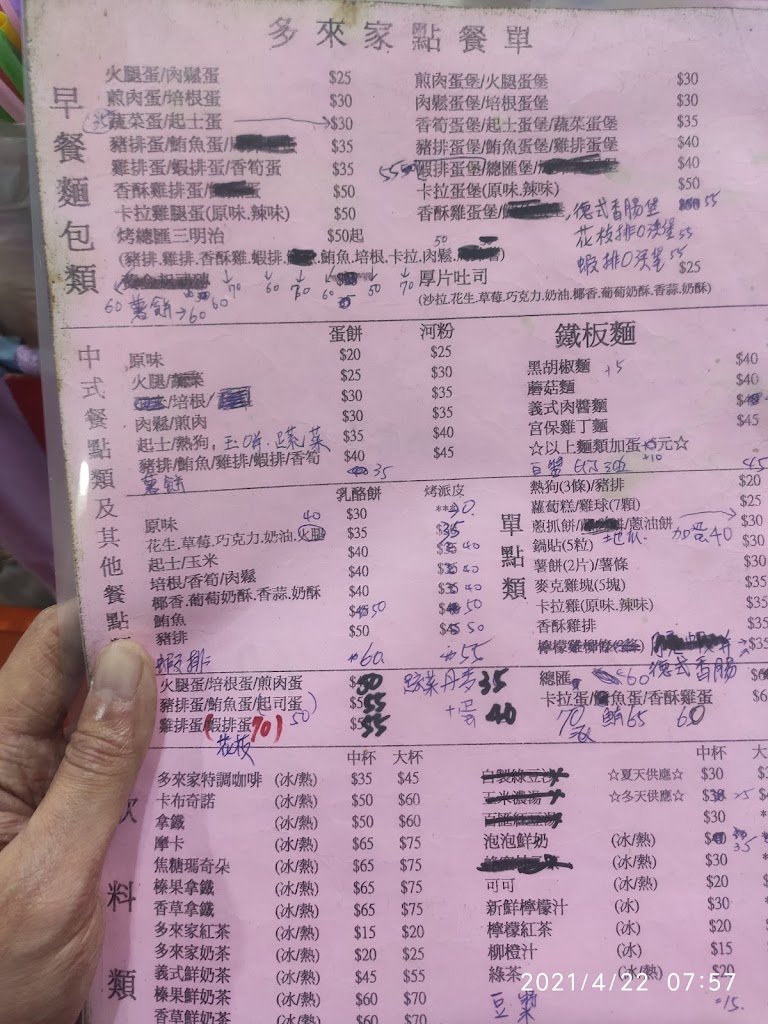 多來家點餐單
早餐麵包類
火腿蛋/肉鬆蛋 $25
煎肉蛋/培根蛋 $30
蔬菜蛋/起士蛋 $30
豬排蛋/鮪魚蛋/ $35
雞排蛋/蝦排蛋/香筍蛋 $35
香酥雞排蛋/ $50
卡拉雞腿蛋(原味.辣味) $50
烤總匯三明治 $50起
(豬排.雞排.香酥雞.蝦排. 鮪魚.培根.卡拉.肉鬆.
60 薯餅→60
煎肉蛋堡/火腿蛋堡 $30
肉鬆蛋堡/培根蛋堡 $30
香筍蛋堡/起士蛋堡/蔬菜蛋堡 $35
豬排蛋堡/鮪魚蛋堡/雞排蛋堡 $40
蝦排蛋堡/總匯堡/ $40
卡拉蛋堡(原味.辣味) $50
香酥雞蛋堡/ 德式香腸堡 55
花枝排 55
蝦排 55
厚片吐司 $25
(沙拉.花生.草莓.巧克力.奶油.椰香.葡萄奶酥.香蒜.奶酥)
中式餐點類及其他餐點
蛋餅 河粉
原味 $20 $25
火腿/ $25 $30
培根/ $30 $35
肉鬆/煎肉 $30 $35
起士/熱狗, 玉米.蔬菜 $35 $40
豬排/鮪魚/雞排/蝦排/香筍 $40 $45
薯餅 35
鐵板麵
黑胡椒麵 +5 $40
蘑菇麵 $40
義式肉醬麵
宮保雞丁麵 $45
☆以上麵類加蛋 元☆
+10
乳酪餅 烤派皮
原味 40 $30
花生.草莓.巧克力.奶油.火腿 $35 35
起士/玉米 $40 40
培根/香筍/肉鬆 $40 40
椰香.葡萄奶酥.香蒜.奶酥 $40 40
鮪魚 50 50
豬排 $50 50
蝦排 60 55
單點類
熱狗(3條)/豬排 $20
蘿蔔糕/雞球(7顆) $25
蔥抓餅/ /蔥油餅 $30
地瓜 加蛋40
鍋貼(5粒) $30
薯餅(2片)/薯條 $30
麥克雞塊(5塊) $35
卡拉雞(原味.辣味) $35
香酥雞排 $35
德式香腸
火腿蛋/培根蛋/煎肉蛋 50
豬排蛋/鮪魚蛋/起司蛋 55 50
雞排蛋(蝦排蛋70) 55
花枝
蔬菜丹麥35
+蛋 40
總匯 60
卡拉蛋/ 魚蛋/香酥雞蛋
70 鮪65 60
飲料類
中杯 大杯
多來家特調咖啡 (冰/熱) $35 $45
卡布奇諾 (冰/熱) $50 $60
拿鐵 (冰/熱) $50 $60
摩卡 (冰/熱) $65 $75
焦糖瑪奇朵 (冰/熱) $65 $75
榛果拿鐵 (冰/熱) $65 $75
香草拿鐵 (冰/熱) $65 $75
多來家紅茶 (冰/熱) $15 $20
多來家奶茶 (冰/熱) $20 $25
義式鮮奶茶 (冰/熱) $45 $55
榛果鮮奶茶 (冰/熱) $60 $70
香草鮮奶茶 (冰/熱) $60 $70
中杯 大
自製綠豆沙 ☆夏天供應☆ $30
玉米濃湯 ☆冬天供應☆
$30
泡泡鮮奶 (冰/熱) 35
(冰/熱) $30
可可 (冰/熱) $20
新鮮檸檬汁 (冰) $30
檸檬紅茶 (冰) $20
柳橙汁 (冰) $15
綠茶 (冰/熱) $20
豆漿 15.
2021/4/22 07:57